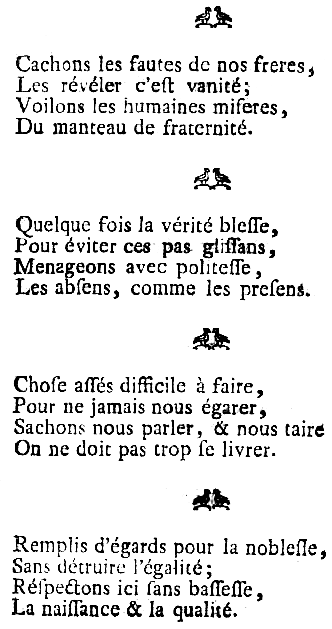 Cachons les fautes de nos freres,
Les révéler c'eſt vanité;
Voilons les humaines miſeres,
Du manteau de fraternité.
Quelque fois la vérité bleſſe,
Pour éviter ces pas gliſſans,
Menageons avec politeſſe,
Les abſens, comme les preſens.
Choſe aſſés difficile à faire,
Pour ne jamais nous égarer,
Sachons nous parler, & nous taire
On ne doit pas trop ſe livrer.
Remplis d'égards pour la nobleſſe,
Sans détruire l'égalité;
Réſpectons ici ſans baſſeſſe,
La naiſſance & la qualité.